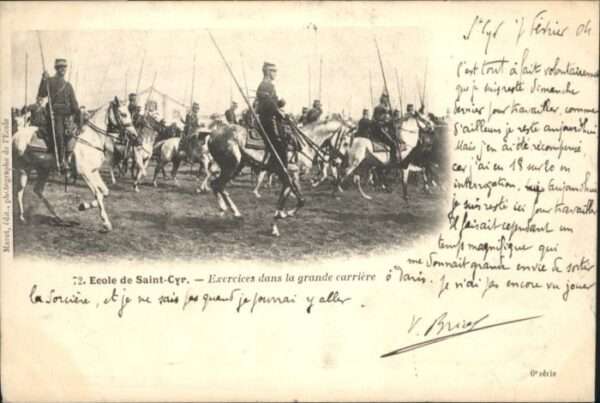 St Cyr 7 février 04
C'est tout à fait volontairement
que je suis resté dimanche
dernier pour travailler, comme
d'ailleurs je reste aujourd'hui
Mais j'en ai été récompensé
car j'ai eu 18 sur 20 en
interrogation, aujourd'hui
je suis resté ici pour travailler
Il faisait cependant un
temps magnifique qui
me donnait grande envie de sortir
à Paris. Je n'ai pas encore vu jouer
la Sorcière, et je ne sais pas quand je pourrai y aller.
72. Ecole de Saint-Cyr. — Exercices dans la grande carrière
6e série
photographe de l'Ecole